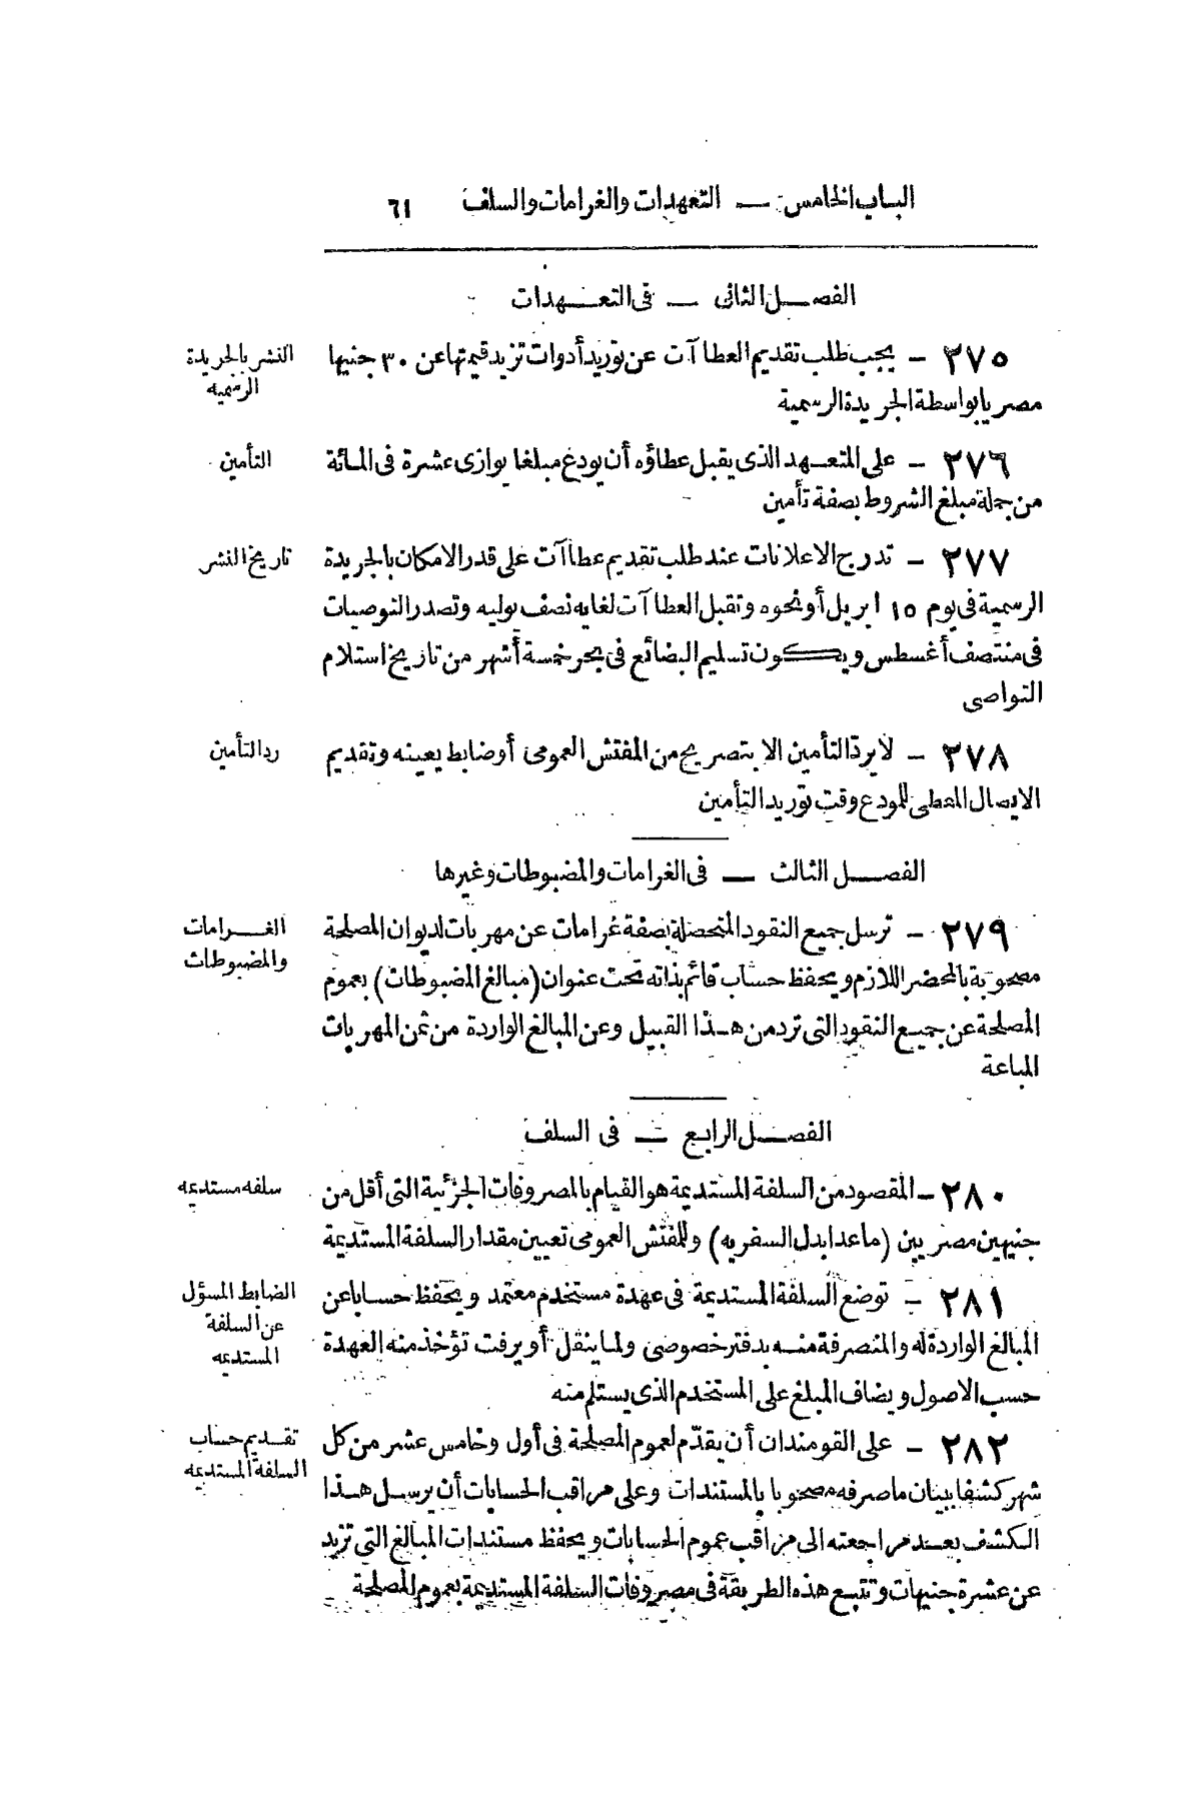 الباب الخامس — التعهدات والغرامات والسلف ٦١
الفصل الثانى — فى التعهدات
٢٧٥ - يجب طلب تقديم العطاآت عن توريد أدوات تزيد قيمتها عن ٣٠ جنيها
مصريا بواسطة الجريدة الرسمية
النشر بالجريدة
الرسميه
٢٧٦ - على المتعهد الذى يقبل عطاؤه أن يودع مبلغا يوازى عشرة فى المائة
من جملة مبلغ الشروط بصفة تأمين
التأمين
٢٧٧ - تدرج الاعلانات عند طلب تقديم عطاآت على قدر الامكان بالجريدة
الرسمية فى يوم ١٥ ابريل أو نحوه وتقبل العطاآت لغايه نصف يوليه وتصدر التوصيات
فى منتصف أغسطس ويكون تسليم البضائع فى بحر خمسة أشهر من تاريخ استلام
التواصى
تاريخ النشر
٢٧٨ - لا يردّ التأمين الا بتصريح من المفتش العمومى أو ضابط يعينه وتقديم
الايصال المعطى للمودع وقت توريد التأمين
رد التأمين
الفصل الثالث — فى الغرامات والمضبوطات وغيرها
٢٧٩ - ترسل جميع النقود المتحصلة بصفة غرامات عن مهربات لديوان المصلحة
مصحوبة بالمحضر اللازم ويحفظ حساب قائم بذاته تحت عنوان (مبالغ المضبوطات) بعموم
المصلحة عن جميع النقود التى ترد من هذا القبيل وعن المبالغ الواردة من ثمن المهربات
المباعة
الغرامات
والمضبوطات
الفصل الرابع — فى السلف
٢٨٠ - المقصود من السلفة المستديمة هو القيام بالمصروفات الجزئية التى أقل من
جنيهين مصريين (ماعدا بدل السفريه) وللمفتش العمومى تعيين مقدار السلفة المستديمة
سلفه مستديمه
٢٨١ - توضع السلفة المستديمة فى عهدة مستخدم معتمد ويحفظ حسابا عن
المبالغ الواردة له والمنصرفة منه بدفتر خصوصى ولما ينقل أو يرفت تؤخذ منه العهدة
حسب الاصول ويضاف المبلغ على المستخدم الذى يستلم منه
الضابط المسؤل
عن السلفة
المستديمه
٢٨٢ - على القومندان أن يقدّم لعموم المصلحة فى أول وخامس عشر من كل
شهر كشفا ببيان ماصرفه مصحوبا بالمستندات وعلى مراقب الحسابات أن يرسل هذا
الكشف بعد مراجعته الى مراقب عموم الحسابات ويحفظ مستندات المبالغ التى تزيد
عن عشرة جنيهات وتتبع هذه الطريقة فى مصروفات السلفة المستديمة بعموم المصلحة
تقديم حساب
السلفة المستديمه